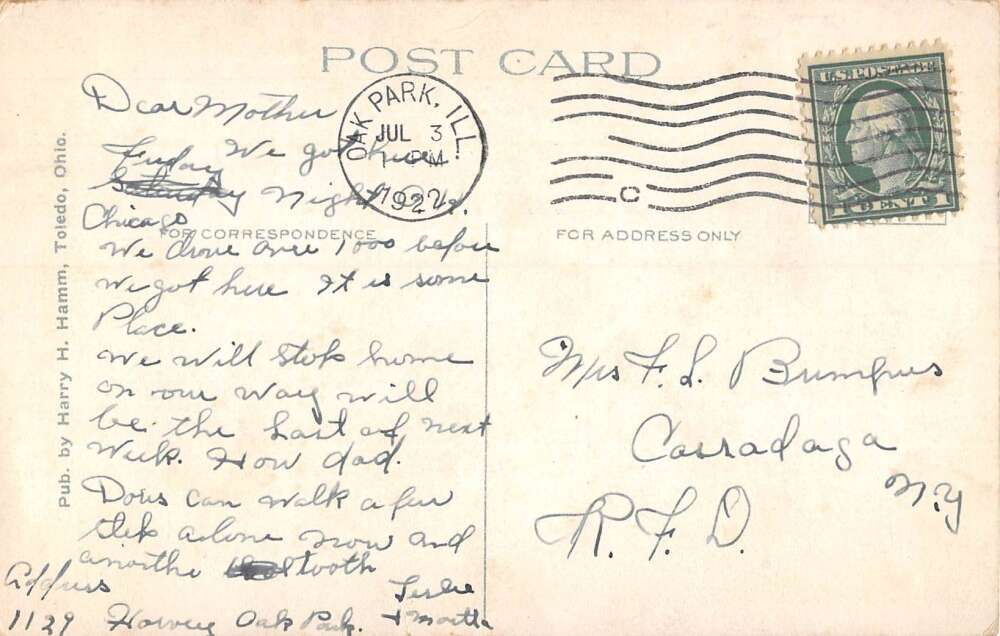 POST CARD
U.S. POSTAGE
OAK PARK, ILL.
JUL 3
1 - PM
1922
C
1 CENT 1
Pub. by Harry H. Hamm, Toledo, Ohio.
FOR CORRESPONDENCE
FOR ADDRESS ONLY
Dear Mother
We got here
Friday
Saturday Night
Chicago
We drove over 1000 before
we got here It is some
Place.
We will stop home
on our way will
be the last of next
Week. How dad.
Doris can walk a few
step alone now and
anothe tooth
Leslie
+ Martha
Address
1129 Harvey Oak Park.
Mrs F. L. Bumpus
Cassadaga
N.Y
R. F. D.